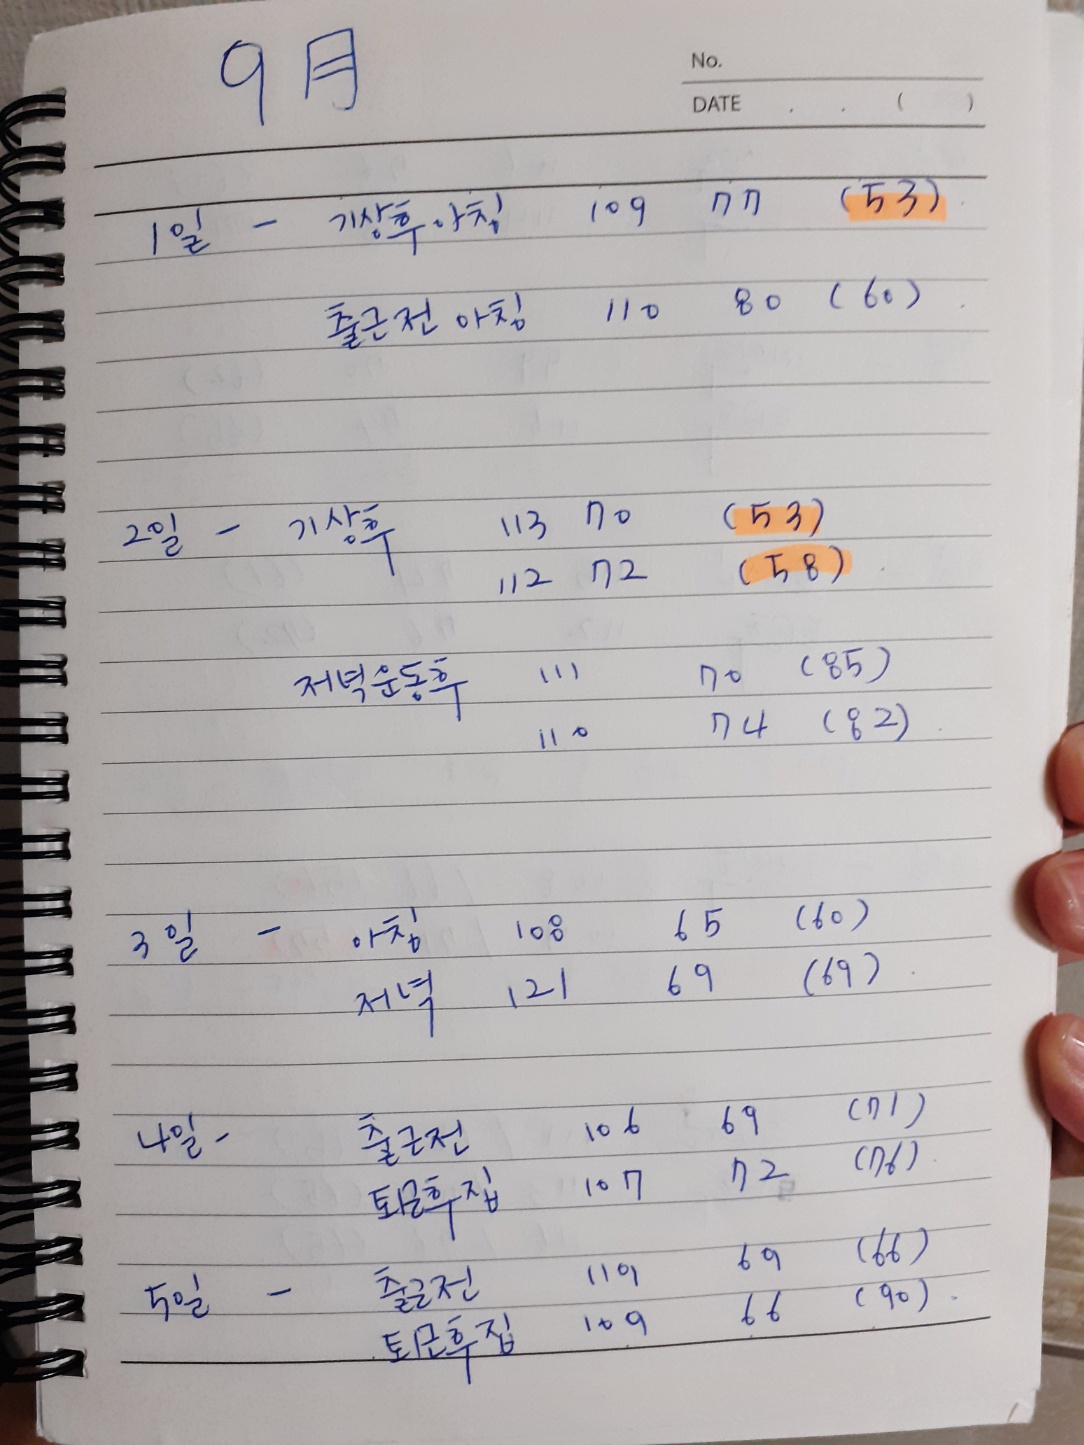 9月
No.
DATE . . ( )
1일 - 기상후 아침 109 77 (53)
출근전 아침 110 80 (60)
2일 - 기상후 113 70 (53)
112 72 (58)
저녁운동후 111 70 (85)
110 74 (82)
3일 - 아침 108 65 (60)
저녁 121 69 (69)
4일 - 출근전 106 69 (71)
퇴근후 집 107 72 (76)
5일 - 출근전 119 69 (66)
퇴근후 집 109 66 (90)